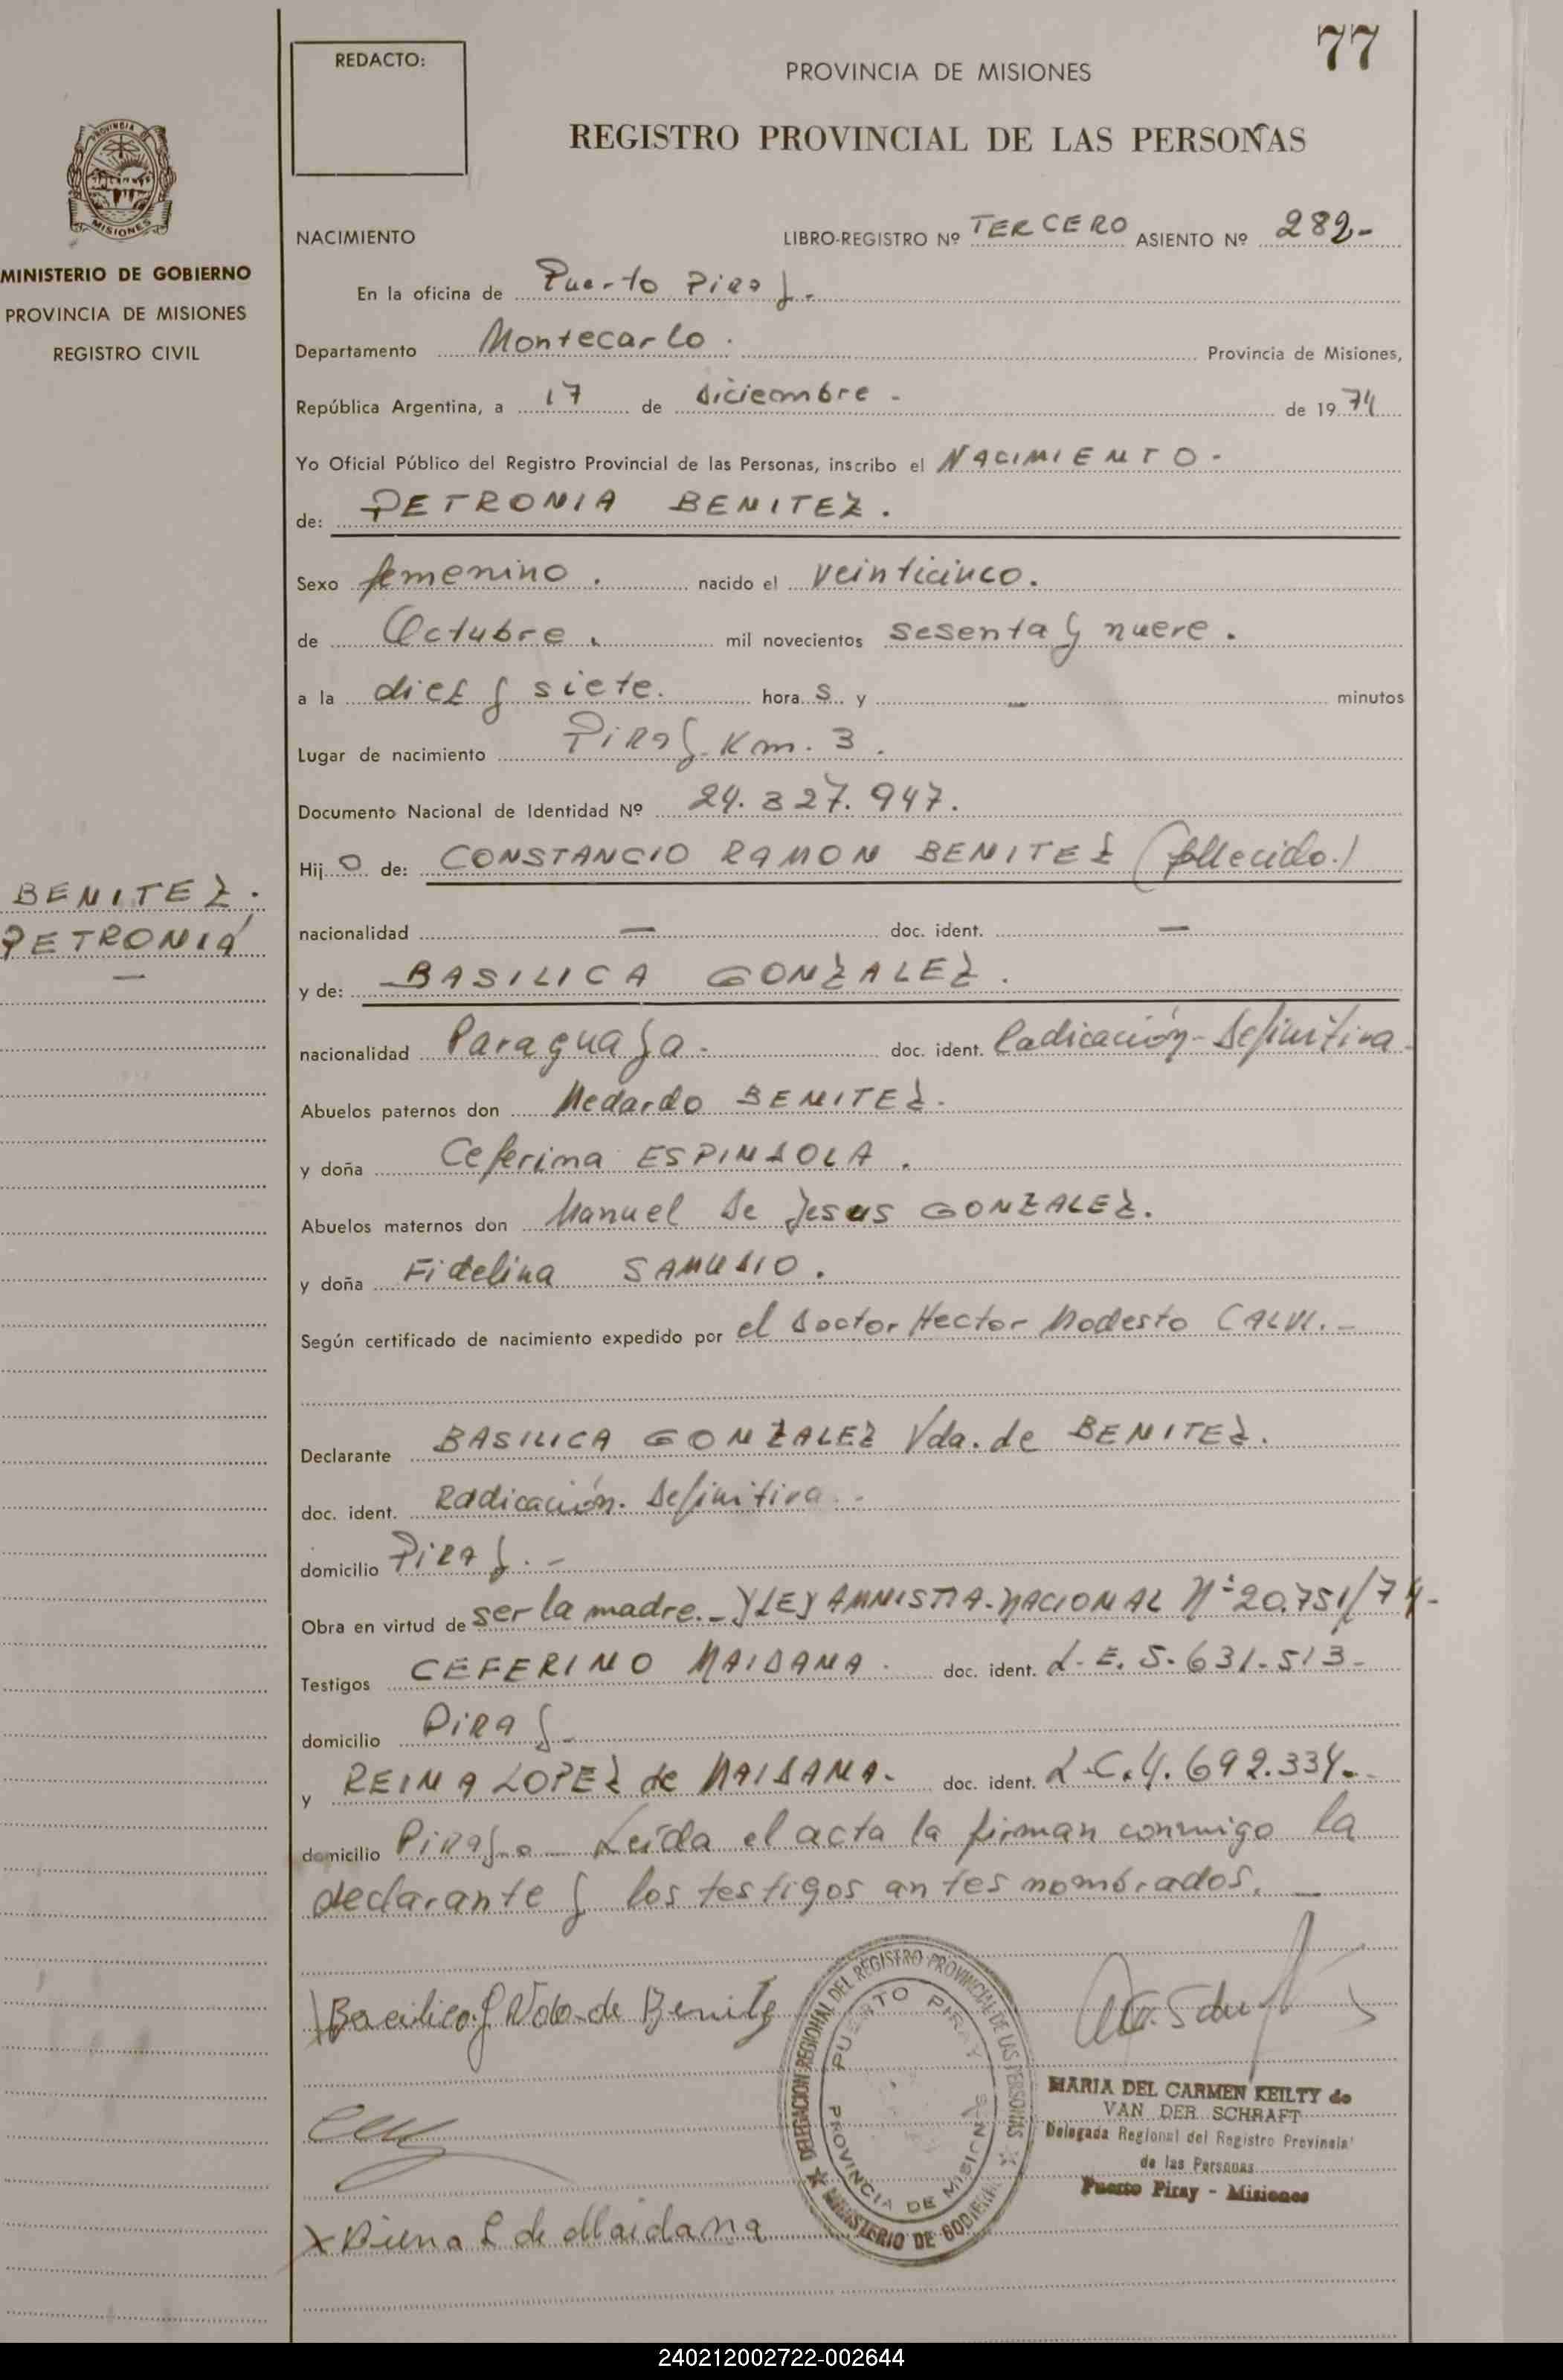 77
REDACTO:
PROVINCIA DE MISIONES
REGISTRO PROVINCIAL DE LAS PERSONAS
PROVINCIA DE
MISIONES
MINISTERIO DE GOBIERNO
PROVINCIA DE MISIONES
REGISTRO CIVIL
NACIMIENTO LIBRO-REGISTRO Nº TERCERO ASIENTO Nº 282-
En la oficina de Puerto Piray.
Departamento Montecarlo. Provincia de Misiones,
República Argentina, a 17 de diciembre - de 1974
Yo Oficial Público del Registro Provincial de las Personas, inscribo el NACIMIENTO.
de: PETRONIA BENITEZ.
Sexo femenino. nacido el veinticinco.
de Octubre. mil novecientos sesenta y nueve.
a la diez y siete. hora s y — minutos
Lugar de nacimiento Piray Km. 3.
Documento Nacional de Identidad Nº 24.327.947.
Hij o de: CONSTANCIO RAMON BENITEZ (fallecido.)
BENITEZ.
PETRONIA
—
nacionalidad — doc. ident. —
y de: BASILICA GONZALEZ.
nacionalidad Paraguaya. doc. ident. Radicación-Definitiva.
Abuelos paternos don Medardo BENITEZ.
y doña Ceferina ESPINDOLA.
Abuelos maternos don Manuel de Jesus GONZALEZ.
y doña Fidelina SAMUDIO.
Según certificado de nacimiento expedido por el doctor Hector Modesto CALVI.-
Declarante BASILICA GONZALEZ Vda. de BENITEZ.
doc. ident. Radicación. Definitiva.-
domicilio Piray.-
Obra en virtud de ser la madre.- Y LEY AMNISTIA NACIONAL Nº 20.751/74-
Testigos CEFERINO MAIDANA. doc. ident. L.E. 5.631.513-
domicilio Piray-
y REINA LOPEZ de MAIDANA. doc. ident. L.C. 4.692.334.-
domicilio Piray.- Leída el acta la firman conmigo la
declarante y los testigos antes nombrados. —
Bacilica G Vda de Benite
DELEGACION REGIONAL DEL REGISTRO PROVINCIAL DE LAS PERSONAS
PUERTO PIRAY
PROVINCIA DE MISIONES
MINISTERIO DE GOBIERNO
MARIA DEL CARMEN KEILTY de
VAN DER SCHRAFT
Delegada Regional del Registro Provincial
de las Personas
Puerto Piray - Misiones
X Riena L de Maidana
240212002722-002644